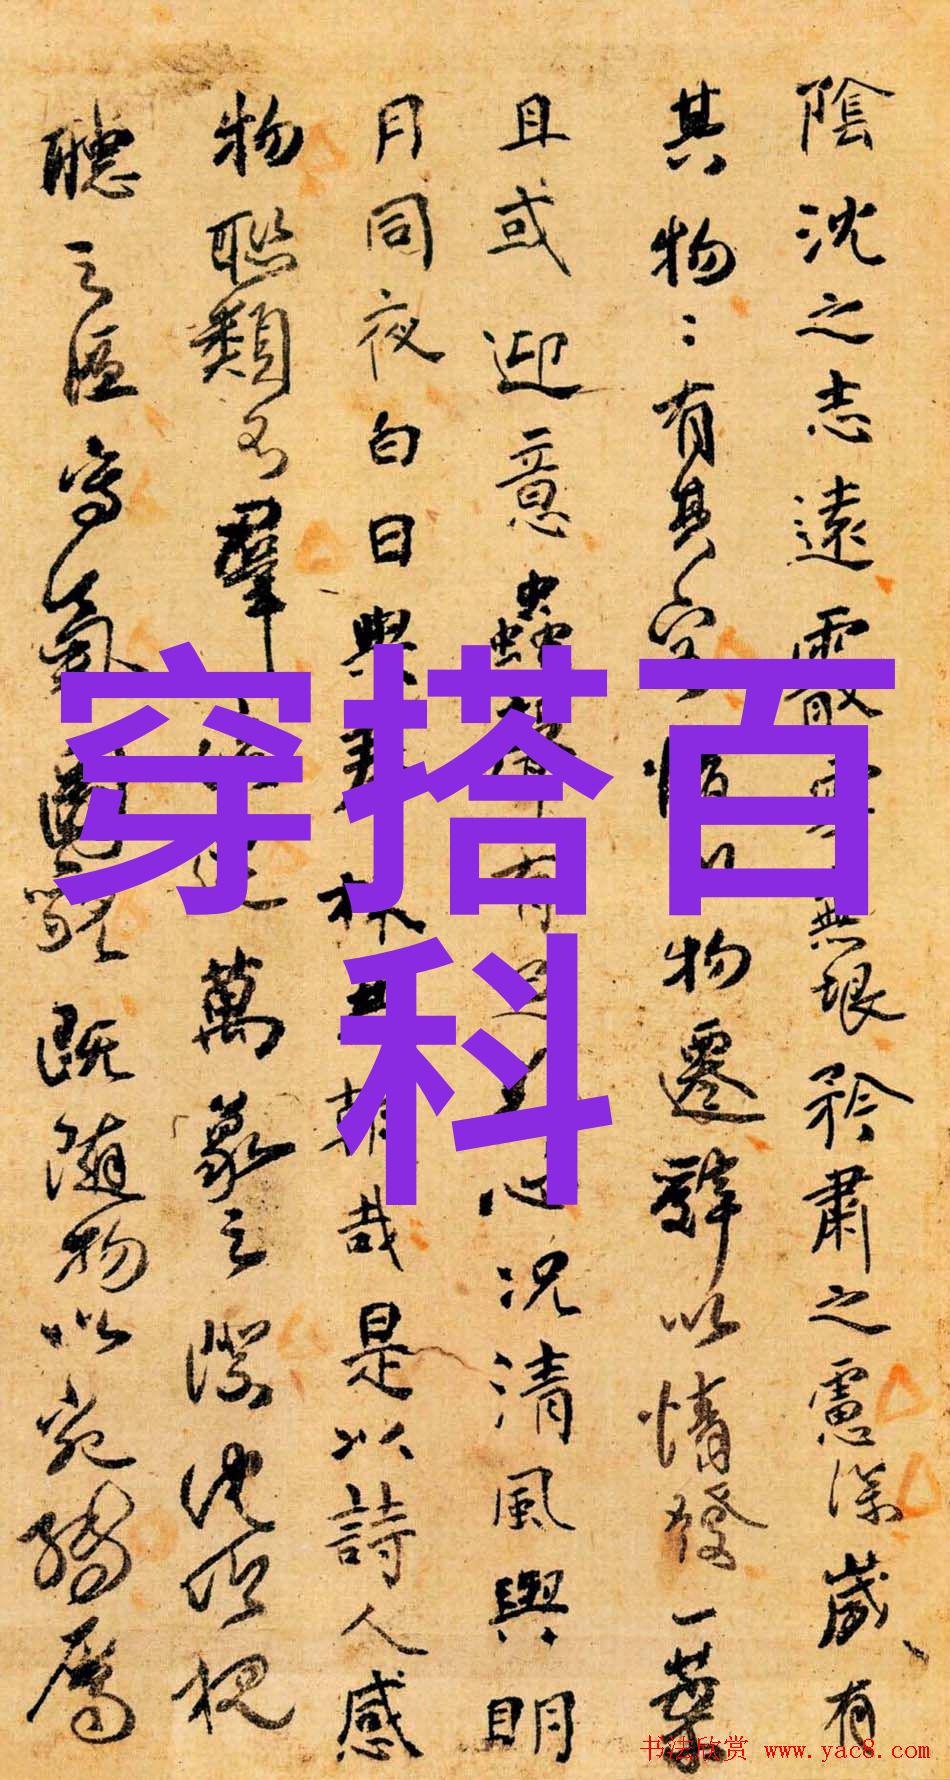 陰沈之志遠霰雪無垠矜肅之慮深歲有
其物＝有其容情以物遷辭以情發一葉
且或迎意蟲聲有足引心況清風與明
月同夜白日與春林共朝哉是以詩人感
物聯類不窮流連萬象之際沈吟視
聽之區寫氣圖貌既隨物以宛轉屬
穿搭百
科
书法欣赏 www.yac8.com